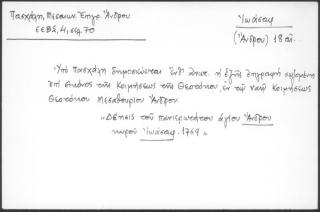 Πασχάλη, Μεσαιων. Ἐπιγρ. Ἄνδρου
ΕΕΒΣ, Η', σελ. 70
Ἰωάσαφ
(Ἄνδρου) 18 αἰ.
Ὑπὸ Πασχάλη δημοσιεύεται ἡ ἑξῆς ἐπιγραφὴ
ἐπὶ εἰκόνος τῆς Κοιμήσεως τῆς Θεοτόκου, ἐν τῷ ναῷ Κοιμήσεως
Θεοτόκου Μεσαθουρίου Ἄνδρου.
"Δέησις τοῦ πανιερωτάτου ἁγίου Ἄνδρου
κυροῦ Ἰωάσαφ. 1769"